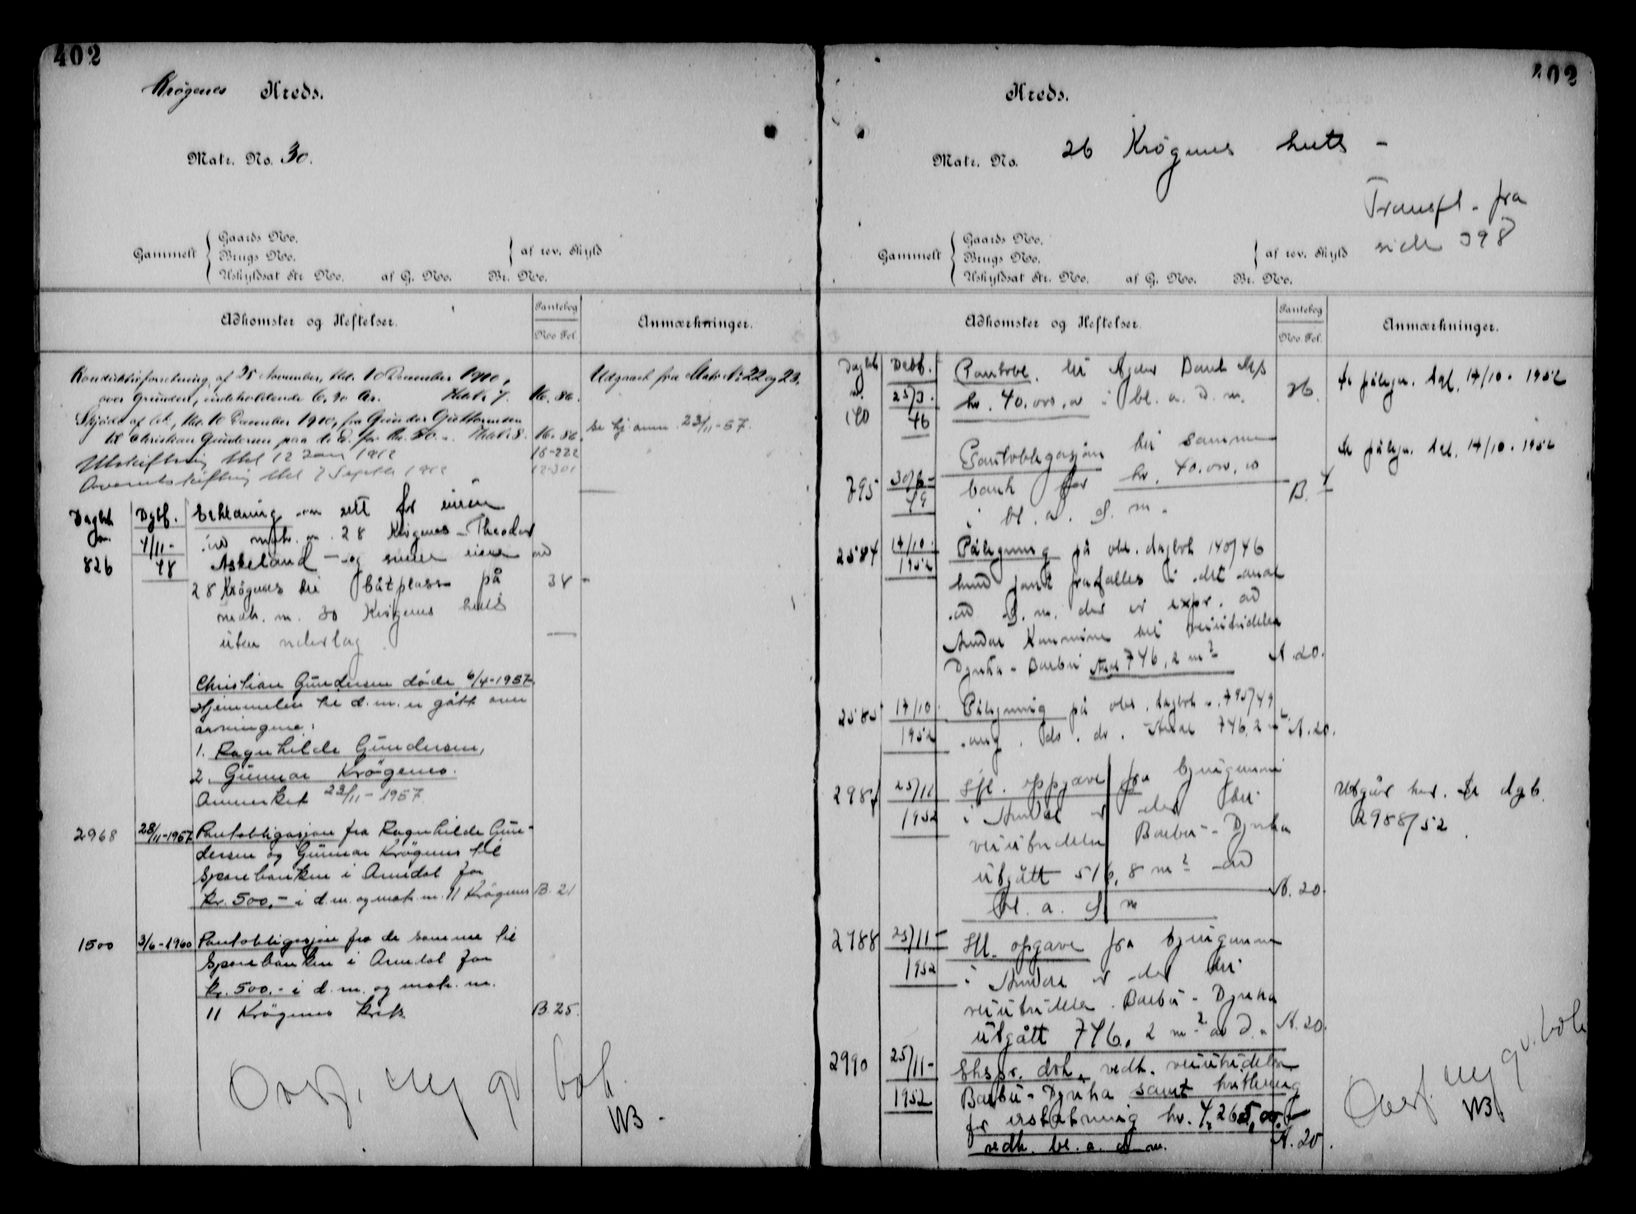 402
Krøgenes Kreds.
Matr. No. 30.
Gammelt { Gaards No.
Brugs No.
Uskyldsat Str. No. af G. No. Br. No. } af rev. Skyld
Adkomster og Heftelser.
Pantebog
No. Fol.
Anmærkninger.
af 25 November, tkl. 10 December 1910,
over Grunden, indeholdende 6,90 Ar. 16. 86.
Udgaaet fra Matr. Nr 22 og 23.
Skjøde af tkl. 10 December 1910, fra Gunder Guttormsen
til Christian Gundersen, paa d. E. for Kr. 50. 16. 86.
se hj. anm. 23/11-57.
Utskiftning tkl 12 Jan 1912 16-222
tkl 7 Septbr 1912 12-301
Dagbok Dgbf. Erklæring om rett for eieren
nr. 4/11- av matr. nr. 28 Krøgenes Theodor
826 48 Askeland og senere eiere av
28 Krøgenes til båtplass på 34
matr. nr. 30 Krøgenes
uten vederlag
Christian Gundersen døde 6/4-1957.
Hjemmelen til d.m. er gått over
arvingene:
1. Ragnhilde Gundersen,
2. Gunnar Krøgenes.
Anmerket 23/11-1957
2968 28/11-1957 Pantobligasjon fra Ragnhilde Gun-
dersen og Gunnar Krøgenes til
Sparebanken i Arendal for
kr. 500,- i d.m. og matr. nr. 11 Krøgenes B. 21
1500 3/6-1960 Pantobligasjon fra de samme til
Sparebanken i Arendal for
kr. 500.- i d.m. og matr. nr.
11 Krögenes B. 25.
Overf. ny gv. bok.
402
Kreds.
Matr. No. 26 Krøgenes
Transf. fra
side 398
Gammelt { Gaards No.
Brugs No.
Uskyldsat Str. No. af G. No. Br. No. } af rev. Skyld
Adkomster og Heftelser.
Pantebog
No. Fol.
Anmærkninger.
Dagbok Dgbf. Pantobl. til Agder Bank A/S
nr. 25/3- kr. 40.000,00 i bl. a. d. m. 26. 14/10-1952
140 46
Pantobligasjon til samme
795 30/6- bank for kr. 40.000,00 B. 4 14/10-1952
49 i bl. a. d. m.
2584 14/10- Påtegning på obl. dagbok 140/46
1952 hvis pant frafalles i det areal
av d. m. der er expr. av
Arendal Kommune til veiutvidelse
Dyvika - Barbu Areal 746,2 m² A. 20.
2585 14/10- Påtegning på obl. dagbok 795/49
1952 ang. do. do. Areal 746,2 m² A. 20.
2987 25/11 oppgave fra
1952 i Arendal er der til
veiutvidelse Barbu - Dyvika
utgått 516,8 m² av
bl. a. d. m A. 20.
Utgår her. Se dgb.
2988/52.
2988 25/11- opgave fra
1952 i Arendal er der til
veiutvidelse Barbu - Dyvika
utgått 746,2 m² av d. m. A. 20.
2990 25/11- Ekspr. dok. vedk. veiutvidelse
1952 Barbu - Dyvika samt kvittering
for erstatning kr.
vedk. bl. a. d. m. A. 20.
Overf. ny gv. bok